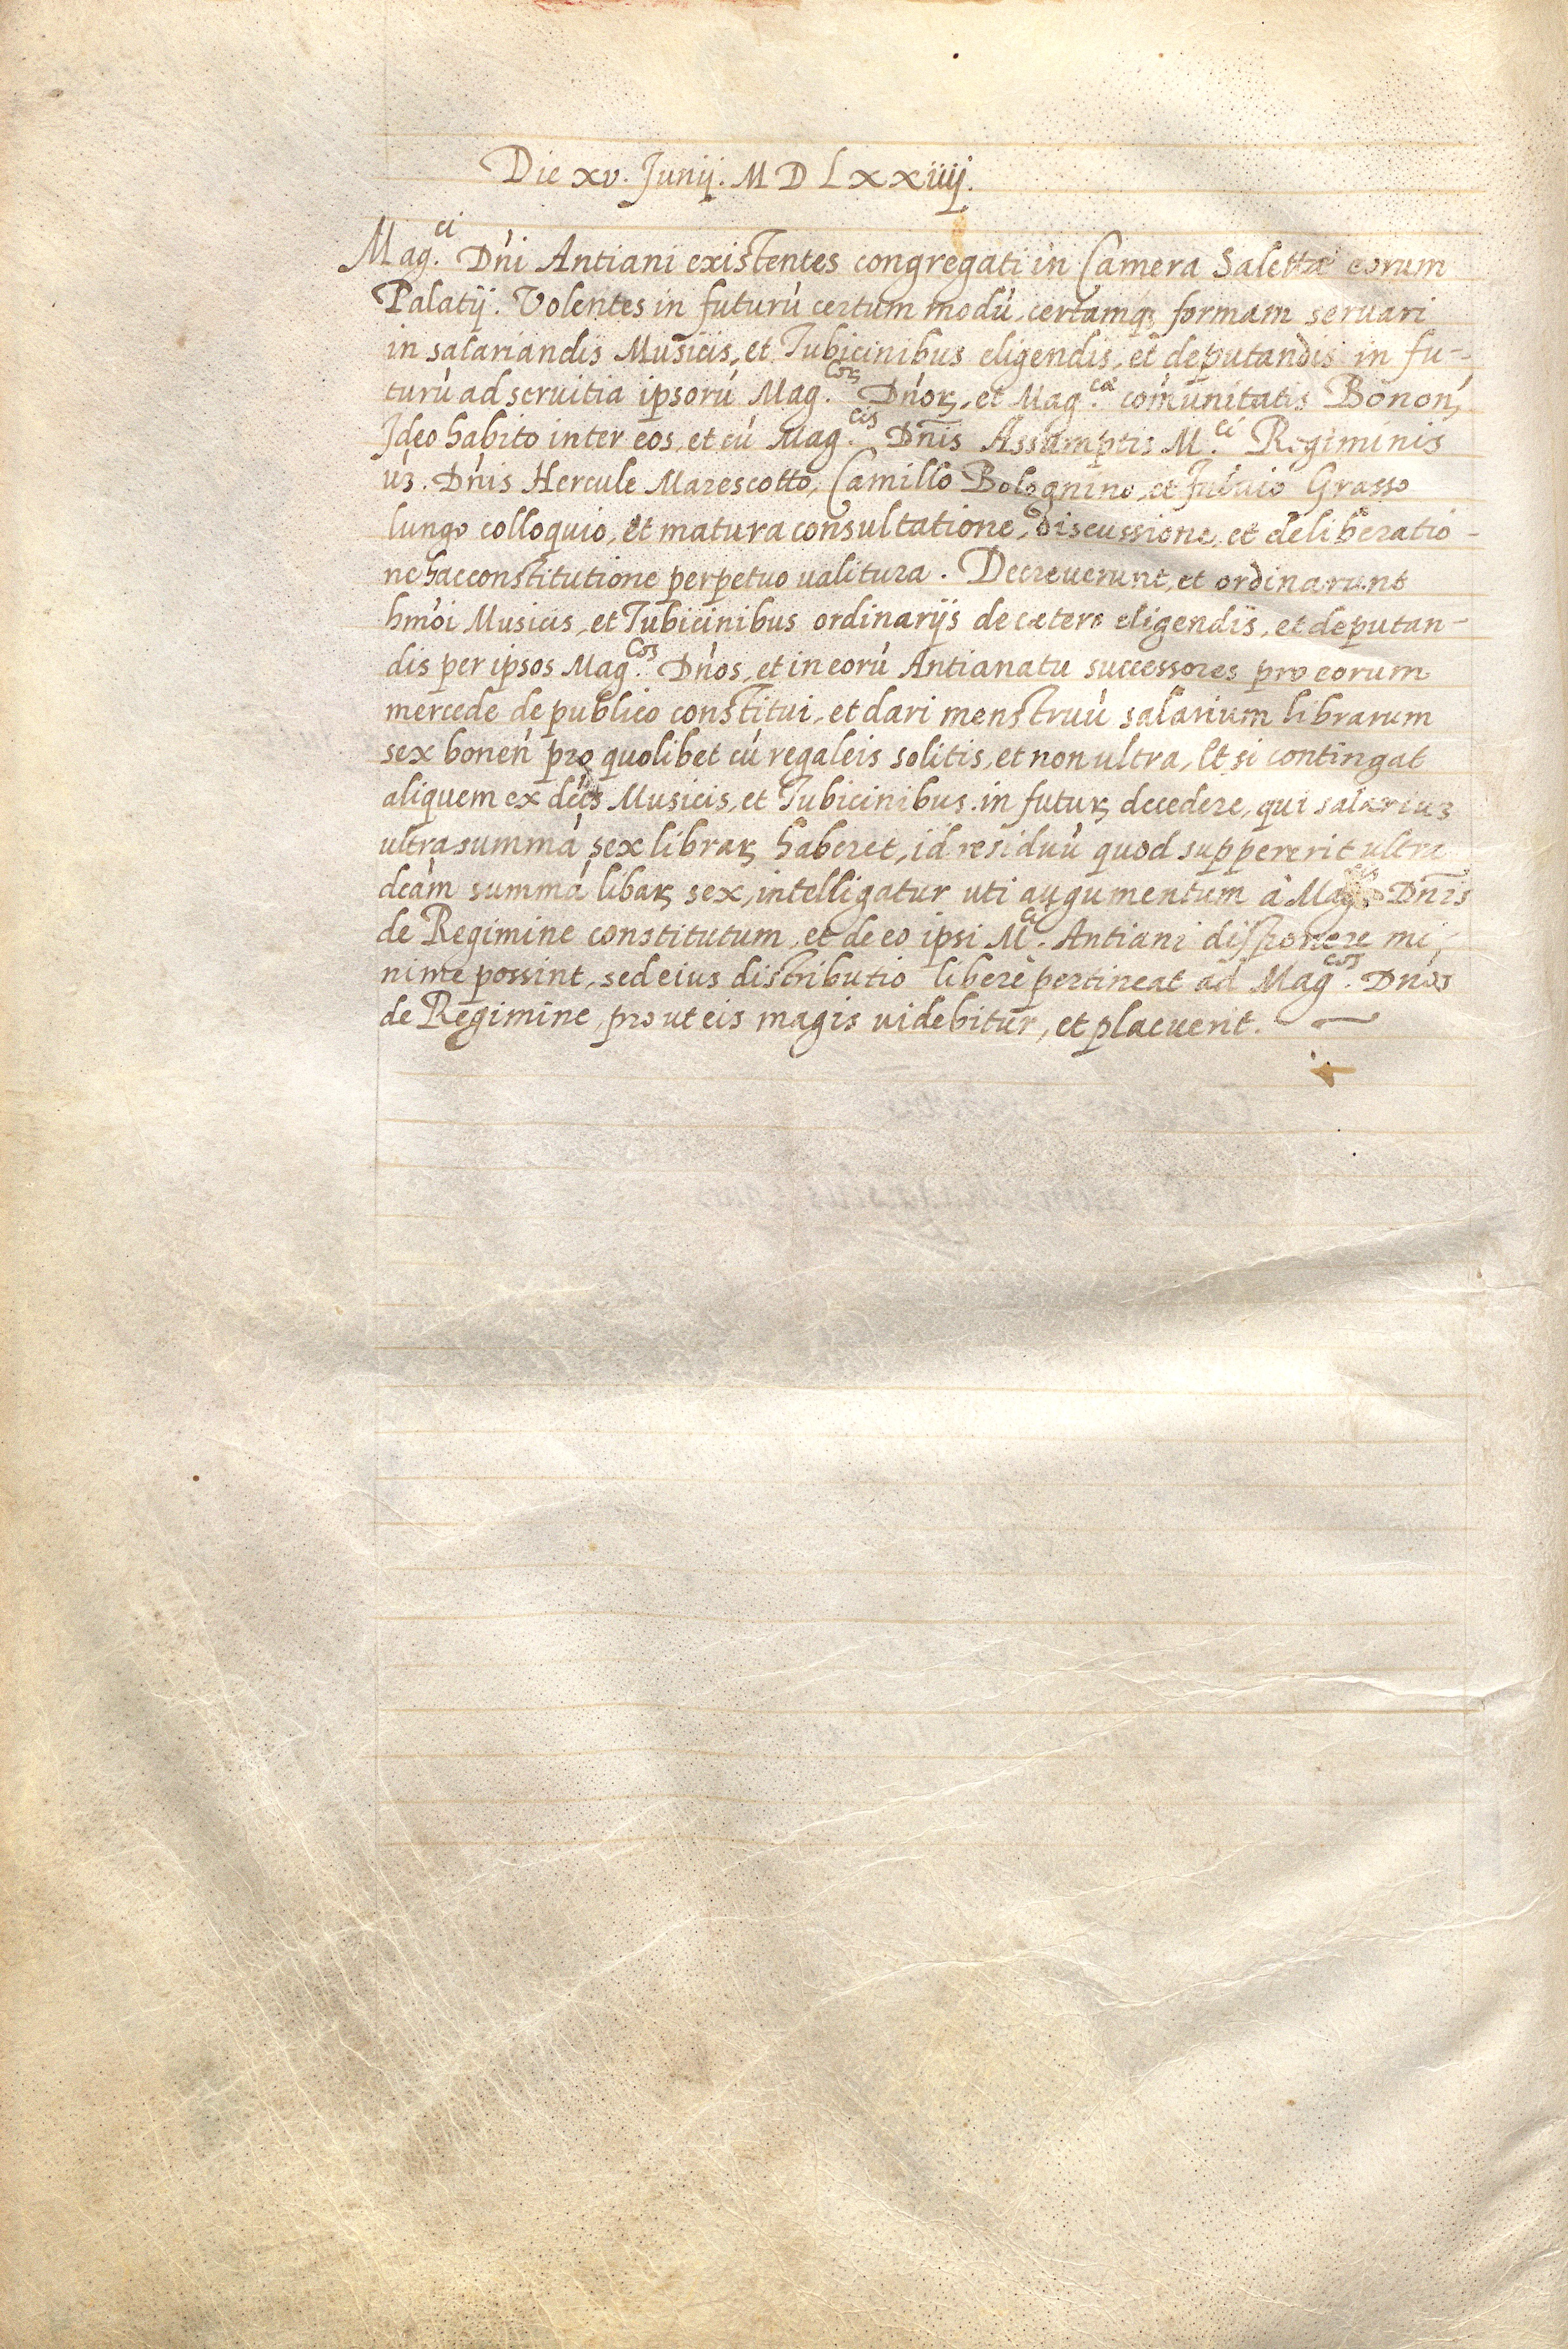 Die xv. Junij. M D Lxxiiij.
Mag.ci Dn̄i Antiani existentes congregati in Camera Salettæ eorum
Palatij. Volentes in futurū certum modū, certamq; formam seruari
in salariandis Musicis, et Tubicinibus eligendis, et deputandis in fu-
turū ad seruitia ipsorū Mag.corꝝ Dn̄orꝝ, et Mag.cæ com̄unitatis Bonon̄,
Ideo habito inter eos, et cū Mag.cis Dn̄is Assumptis M.ci Regiminis
uꝫ. Dn̄is Hercule Marescotto, Camillo Bolognino, et Fuluio Grasso
lungo colloquio, et matura consultatione, discussione, et deliberatio-
ne hac constitutione perpetuo ualitura. Decreuerunt, et ordinarunt
hm̄oi Musicis, et Tubicinibus ordinarijs de cætero eligendis, et deputan-
dis per ipsos Mag.cos Dn̄os, et in eorū Antianatu successores pro eorum
mercede de publico constitui, et dari menstruū salarium librarum
sex bonen̄ pro quolibet cū regaleis solitis, et non ultra, Et si contingat
aliquem ex dc̄is Musicis, et Tubicinibus in futurꝝ decedere, qui salariuꝫ
ultra summā sex librarꝝ haberet, id residuū quod suppererit ultra
dc̄am summā libarꝝ sex, intelligatur uti augumentum à Mag. Dn̄is
de Regimine constitutum, et de eo ipsi M.ci Antiani disponere mi-
nime possint, sed eius distributio liberè pertineat ad Mag.cos Dn̄os
de Regimine, prout eis magis uidebitur, et placuerit.